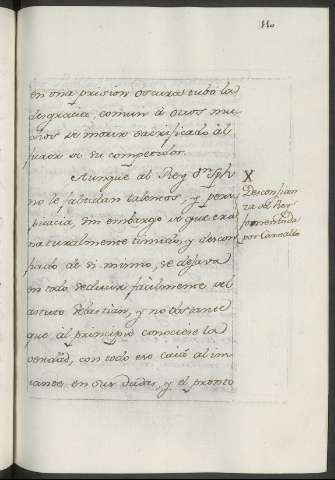 110
en una prision oscura tubo la
desgracia, comun à otros mu
chos de morir sacrificado àl
furor de su competidor.
Aunque al Rey Dn Jph
no le faltaban talentos, y pers
picacia, sin embargo de que era
naturalmente timido, y descon
fiado de si mismo, se dejava
en todo seducir fàcilmente del
astuto Sebastian, y no obstante
que al principio conociese la
verdad, con todo eso caia al ins
tante en sus dudas, y el pronto
X
Desconfian
za del Rey
fomentada
por Carvallo